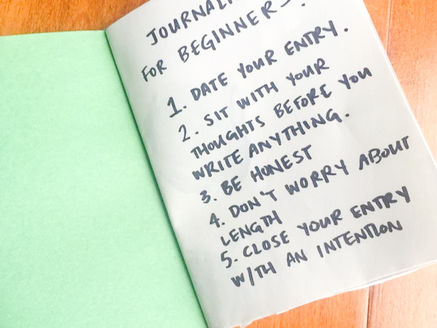 FOR BEGINNERS.
1. DATE YOUR ENTRY.
2. SIT WITH YOUR
THOUGHTS BEFORE YOU
WRITE ANYTHING.
3. BE HONEST
4. DON'T WORRY ABOUT
LENGTH
5. CLOSE YOUR ENTRY
WITH AN INTENTION